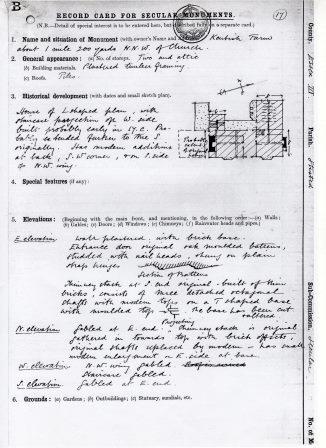 B
RECORD CARD FOR SECULAR MONUMENTS.
(17)
(N.B.—Detail of special interest is to be entered here, but described on a separate card.)
1. Name and situation of Monument (with owner's Name and Kentish Farm
about 1 mile 200 yards N.N.W. of Church.
2. General appearance: (a) No. of storeys. Two and attic
(b) Building materials. Plastered timber framing
(c) Roofs. Tiles
3. Historical development (with dates and small sketch plan).
House of L shaped plan, with
staircase projection on W. side
built probably early in 17 C. Pro-
bably extended further to the S.
originally. Has modern additions
at back, S.W. corner, & on S. side
of N.W. wing.
4. Special features (if any):
5. Elevations: (Beginning with the main front, and mentioning, in the following order:—(a) Walls;
(b) Gables; (c) Doors; (d) Windows; (e) Chimneys; (f) Rainwater heads and pipes.)
E. elevation Wall plastered, with brick base.
Entrance door original oak moulded battens,
studded with nail heads & hung on plain
strap hinges
Section of Battens
Chimney stack at S. end original & built of thin
bricks, consists of three detached octagonal
shafts with modern tops on a T shaped base
with moulded top. The base has been cut
Projecting
N. elevation Gabled at E. end. Chimney stack is original
gathered in towards top with brick offsets,
original shafts replaced by modern - has small
modern enlargement on E. side at base.
W. elevation N.W. wing gabled
Staircase gabled.
S. elevation Gabled at E. end
6. Grounds: (a) Gardens; (b) Outbuildings; (c) Statuary, sundials, etc.
County
Essex III
Parish.
Sub-Commission.
No. of